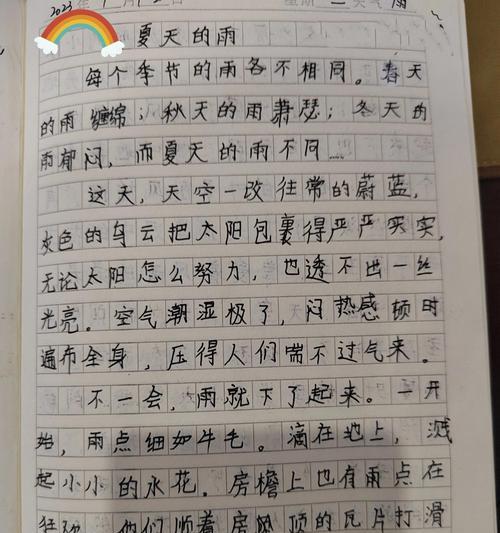 2023年 月 日 星期二 天气 雨
夏天的雨
每个季节的雨各不相同。春天
的雨缠绵；秋天的雨萧瑟；冬天的
雨郁闷，而夏天的雨不同……
这天，天空一改往常的蔚蓝，
灰色的乌云把太阳包裹得严严实实，
无论太阳怎么努力，也透不出一丝
光亮。空气潮湿极了，闷热感顿时
遍布全身，压得人们喘不过气来。
不一会，雨就下了起来。一开
始，雨点细如牛毛。滴在地上，溅
起小小的水花。房檐上也有雨点在
狂欢，他们顺着房顶的瓦片打滑